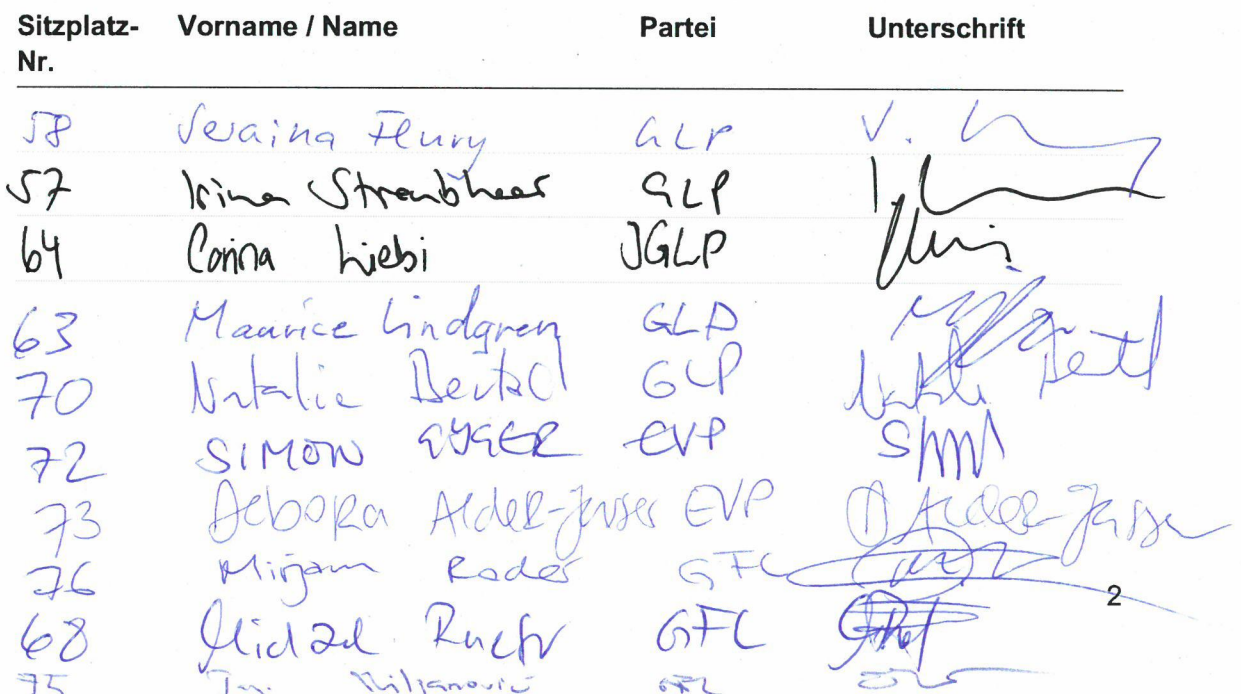 Sitzplatz- Vorname / Name Partei Unterschrift
Nr.
58 Seraina Fleury GLP V.
57 Irina Straubhaar GLP I.
64 Corina Liebi JGLP
63 Maurice Lindgren GLP
70 Natalie Bertsch GLP Natalie
72 SIMON GYGER EVP
73 Debora Alder-Gasser EVP D Alder-Gasser
76 Mirjam Roder GFL
68 Michael Ruefer GFL
75 GFL
2